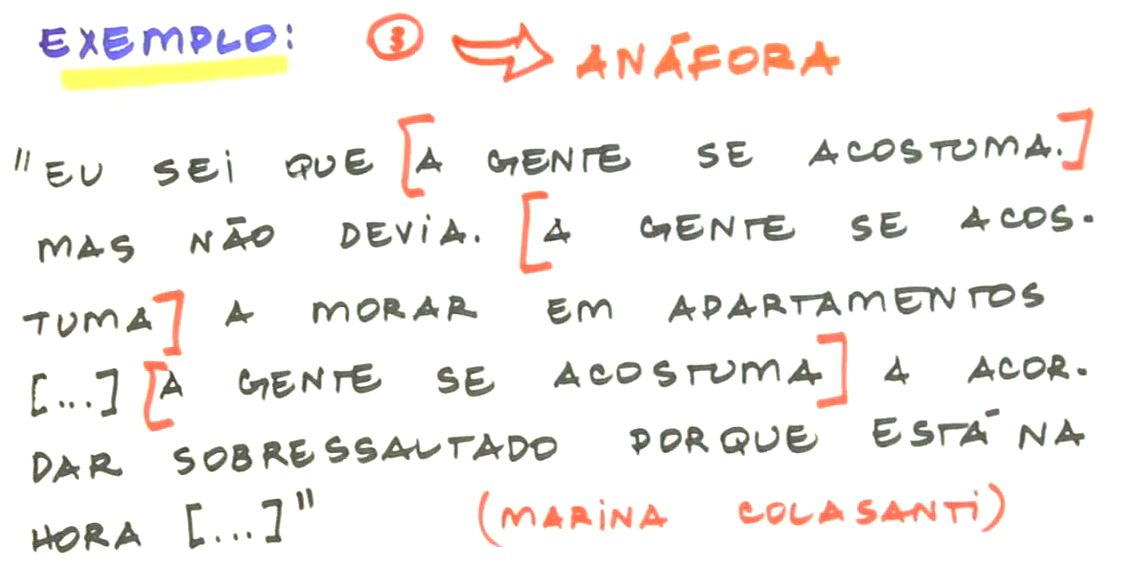 EXEMPLO: 3 ANÁFORA
"EU SEI QUE [A GENTE SE ACOSTUMA.]
MAS NÃO DEVIA. [A GENTE SE ACOS-
TUMA] A MORAR EM APARTAMENTOS
[...] [A GENTE SE ACOSTUMA] A ACOR-
DAR SOBRESSALTADO PORQUE ESTÁ NA
HORA [...]" (MARINA COLASANTI)